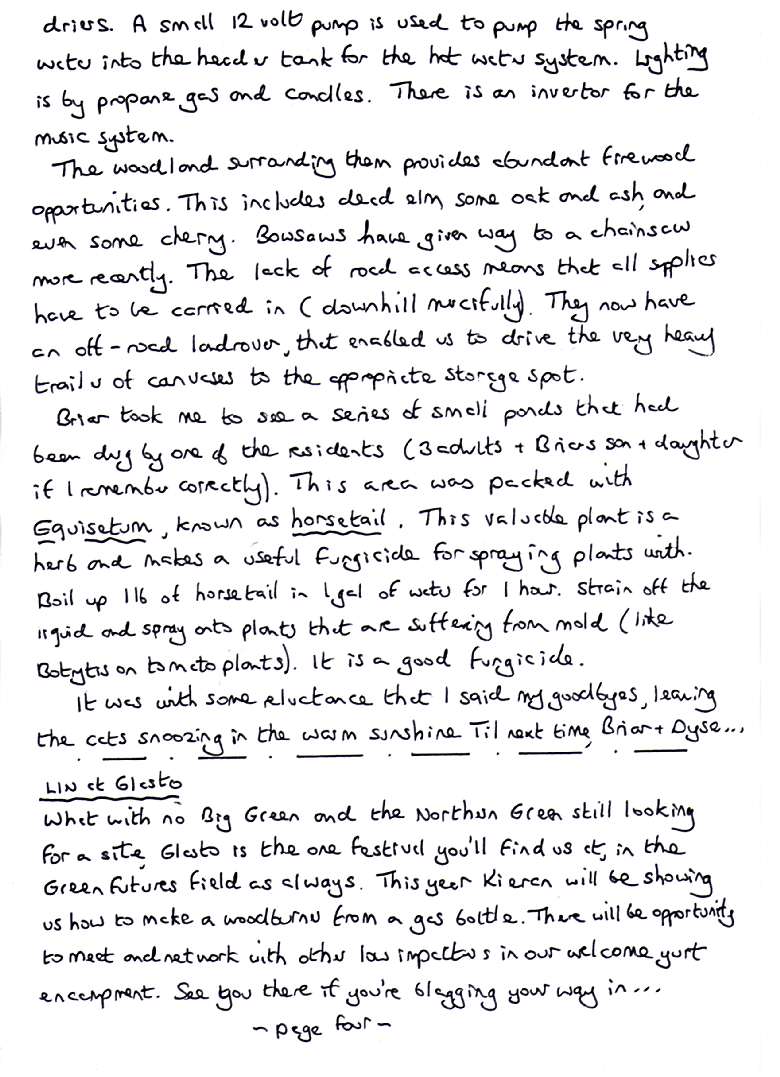 driers. A small 12 volt pump is used to pump the spring
water into the header tank for the hot water system. Lighting
is by propane gas and candles. There is an invertor for the
music system.
The woodland surrounding them provides abundant firewood
opportunities. This includes dead elm, some oak and ash, and
even some cherry. Bowsaws have given way to a chainsaw
more recently. The lack of road access means that all supplies
have to be carried in (downhill mercifully). They now have
an off-road landrover, that enabled us to drive the very heavy
trailer of canvases to the appropriate storage spot.
Briar took me to see a series of small ponds that had
been dug by one of the residents (3 adults + Briars son + daughter
if I remember correctly). This area was packed with
Equisetum, known as horsetail. This valuable plant is a
herb and makes a useful fungicide for spraying plants with.
Boil up 1lb of horsetail in 1 gal of water for 1 hour. Strain off the
liquid and spray onto plants that are suffering from mold (like
Botrytis on tomato plants). It is a good fungicide.
It was with some reluctance that I said my goodbyes, leaving
the cats snoozing in the warm sunshine Til next time, Briar + Dyse...
LIN at Glasto
What with no Big Green and the Northern Green still looking
for a site, Glasto is the one festival you'll find us at, in the
Green futures field as always. This year Kieran will be showing
us how to make a woodburner from a gas bottle. There will be opportunity
to meet and network with other low impacters in our welcome yurt
encampment. See you there if you're blagging your way in...
~ page four ~